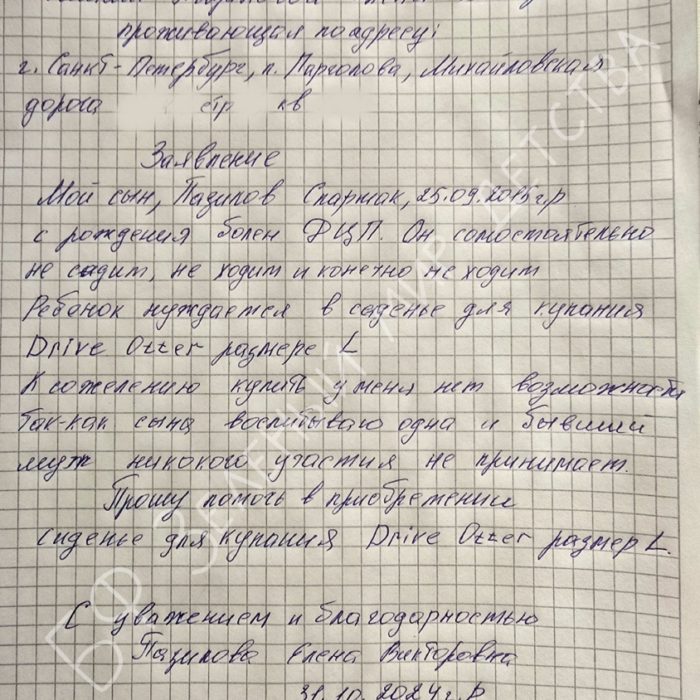 проживающая по адресу:
г. Санкт-Петербург, п. Парголова, Михайловская
дорога стр кв
Заявление
Мой сын, Пазилов Спартак, 25.09.2015г.р
с рождения болен ДЦП. Он сомостоятельно
не садит, не ходит и конечно не ходит
Ребёнок нуждается в саденье для купания
Drive Otter размере L
К сожелению купить у меня нет возможности
так-как сына воспитываю одна и бывший
муж никокого участия не принимает.
Прошу помочь в приобремении
сиденье для купания Drive Otter размер L.
С уважением и благодарностью
Пазилова Елена Викторовна
31.10.2024г.р
БФ ЗЕЛЕНЫЙ МИР ДЕТСТВА